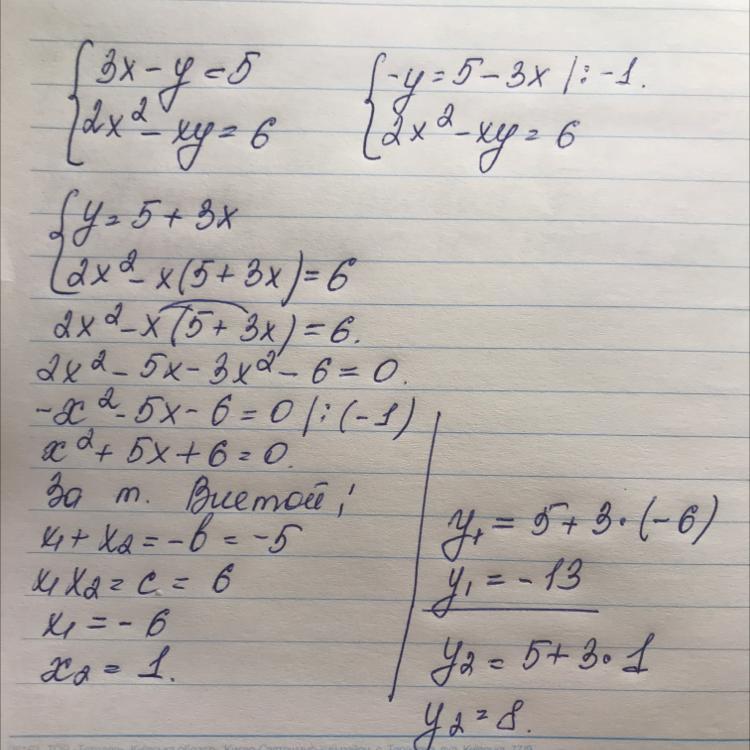 3x - y = 5
2x² - xy = 6
-y = 5 - 3x |: -1.
2x² - xy = 6
y = 5 + 3x
2x² - x(5 + 3x) = 6
2x² - x(5 + 3x) = 6.
2x² - 5x - 3x² - 6 = 0.
-x² - 5x - 6 = 0 |: (-1)
x² + 5x + 6 = 0.
За т. Виетой;
x₁ + x₂ = -b = -5
x₁x₂ = c = 6
x₁ = -6
x₂ = 1.
y₁ = 5 + 3 · (-6)
y₁ = -13
y₂ = 5 + 3 · 1
y₂ = 8.